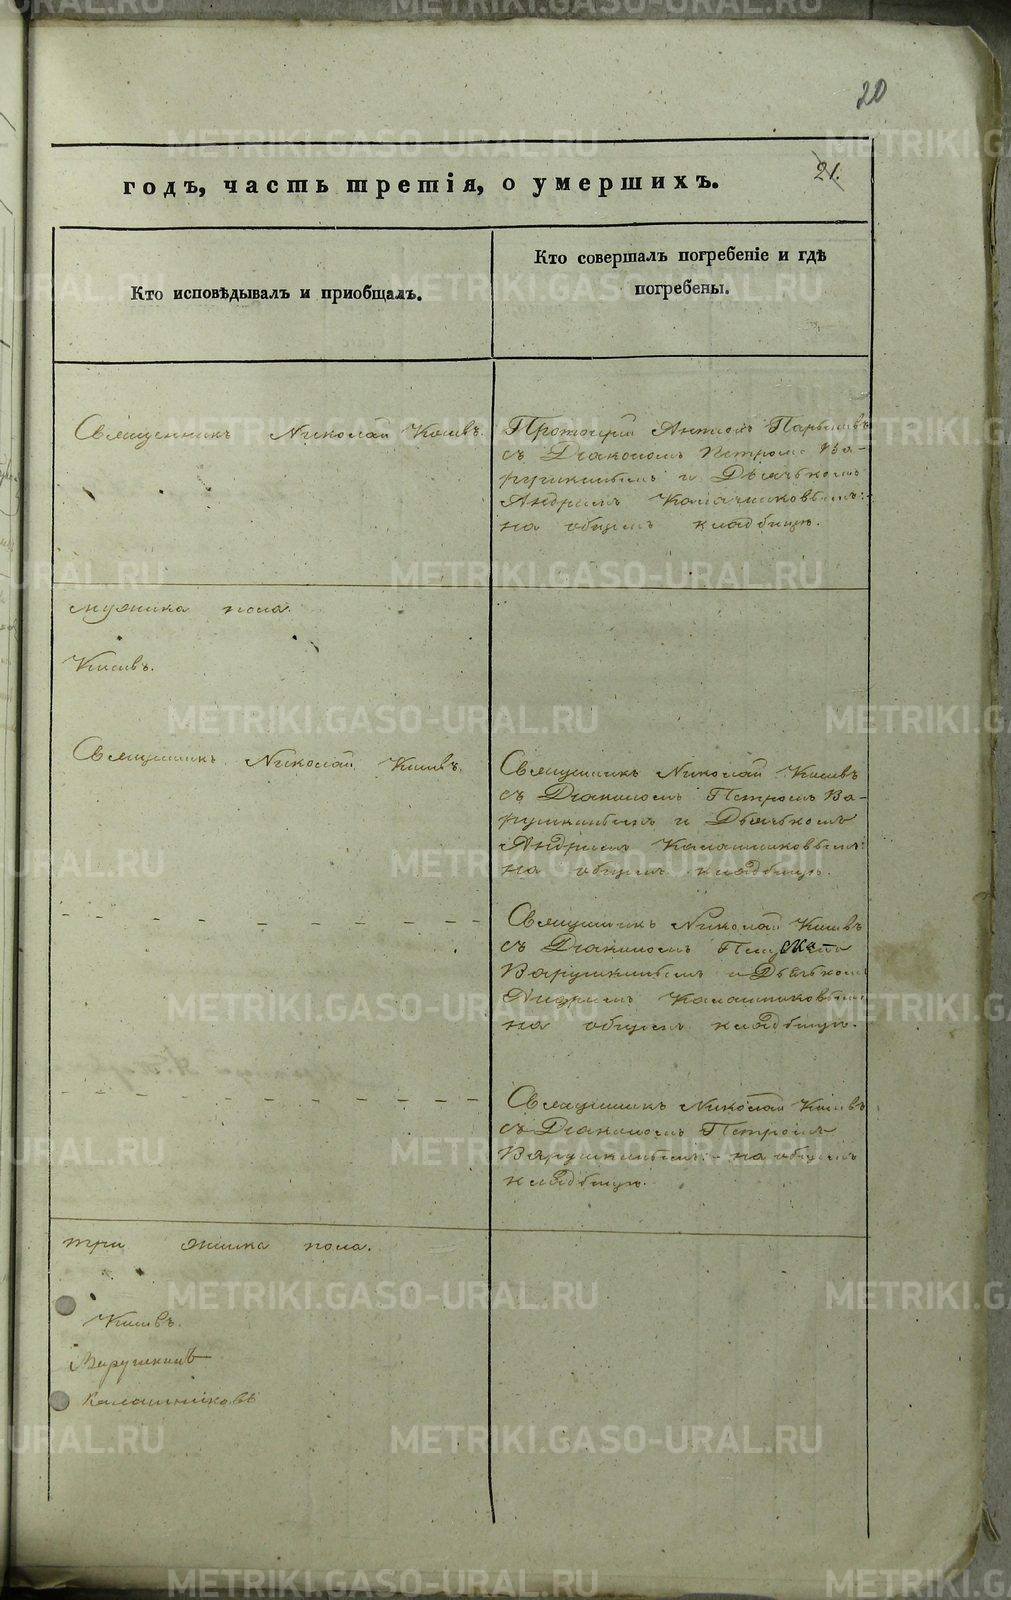 20
21.
годъ, часть третія, о умершихъ.
Кто исповѣдывалъ и приобщалъ.
Кто совершалъ погребеніе и гдѣ
погребены.
Священникъ Николай
Протоіерей
съ Діакономъ Петромъ Ва-
рушкинымъ и Дьячкомъ
Андреемъ Калашниковымъ:
на общемъ кладбищѣ.
мужеска пола.
Священникъ Николай
Священникъ Николай
съ Діакономъ Петромъ Ва-
рушкинымъ и Дьячкомъ
Андреемъ Калашниковымъ:
на общемъ кладбищѣ.
Священникъ Николай
съ Діакономъ
Варушкинымъ и Дьячкомъ
Андреемъ Калашниковымъ
на общемъ кладбищѣ.
Священникъ Николай
съ Діакономъ Петромъ
Варушкинымъ: на общемъ
кладбищѣ.
три женска пола.
Варушкинъ
Калашниковъ
METRIKI.GASO-URAL.RU